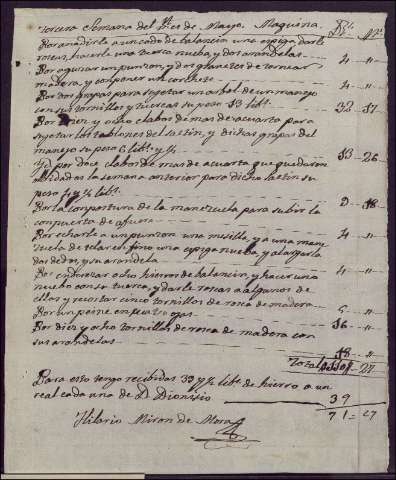 tercera Semana del Mes de Mayo. Maquina. Rs. Ms.
Por añadirle a un cabo de balancin una espiga, darle
rosca, hacerle una tuerca nueva, y dos arandelas 4 "
Por aguzar un punzon, y dos granetes de tornear
madera, y componer un corchete 4 "
Por dos grapas para sujetar un arbol de un manejo
con sus tornillos y tuercas su peso 13 libs. 33 17
Por y ocho clabos de mas de acuarta para
sujetar los tablones del saetin, y dichas grapas del
manejo su peso 6 libs. y ½ 13 26
Yd. por doce clabos de mas de acuarta que quedaron
olvidadas la semana anterior para dicho saetin su
peso 4 y ½ libs. 9 18
Por la compostura de la manezuela para subir la
compuerta de afuera 4 "
Por echarle a un punzon una mesilla, y a una mane
zuela de telar en fino una espiga nueva, y alargarla
dos dedos, y su arandela 4 "
Por enderezar ocho hierros de balancin, y hacer uno
nuebo con su tuerca, y darle roscas a algunos de
ellos y recortar cinco tornillos de rosca de madera
Por un peine en quatro ojas 6 "
Por diez y ocho tornillos de rosca de madera con 16 "
sus arandelas 18 "
Total 110 27
Para esto tengo recibidas 39 y ½ libs. de hierro a un
real cada una de D. Dionisio 39
71 27
Hilario Miron de Mora